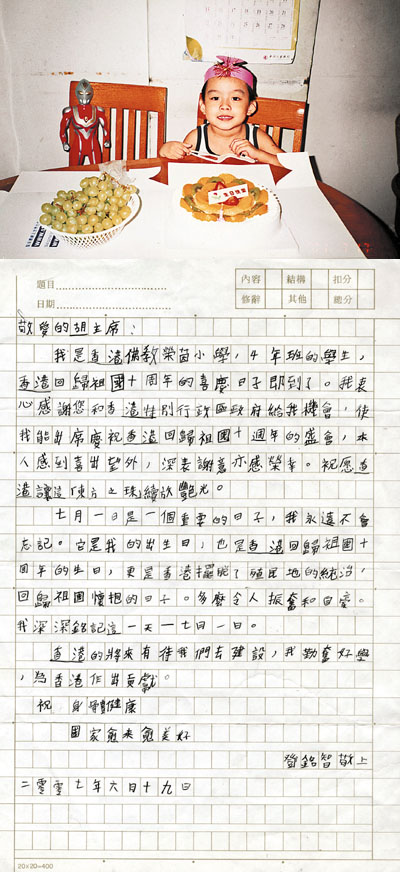 生日快樂
題目
日期
內容 結構 扣分
修辭 其他 總分
敬愛的胡主席：
我是香港佛教榮茵小學，4年班的學生，
香港回歸祖國十周年的喜慶日子即到了。我衷
心感謝您和香港特別行政區政府給我機會，使
我能席慶祝香港回歸祖國十週年的盛會，本
人感到喜出望外，深表謝意亦感榮幸。祝愿香
港讓這「東方之珠續放艷光。
七月一日是一個重要的日子，我永遠不會
忘記。它是我的出生日，也是香港回歸祖國十
周年的生日，更是香港擺脫了殖民地的統治，
回歸祖國懷抱的日子。多麼令人振奮和自豪。
我深深銘記這一天一七月一日。
香港的將來有待我們去建設，我勤奮好學
，為香港作出貢獻。
祝 身體健康
國家愈來愈美好
鄧銘智敬上
二零零七年六月十九日
20×20=400